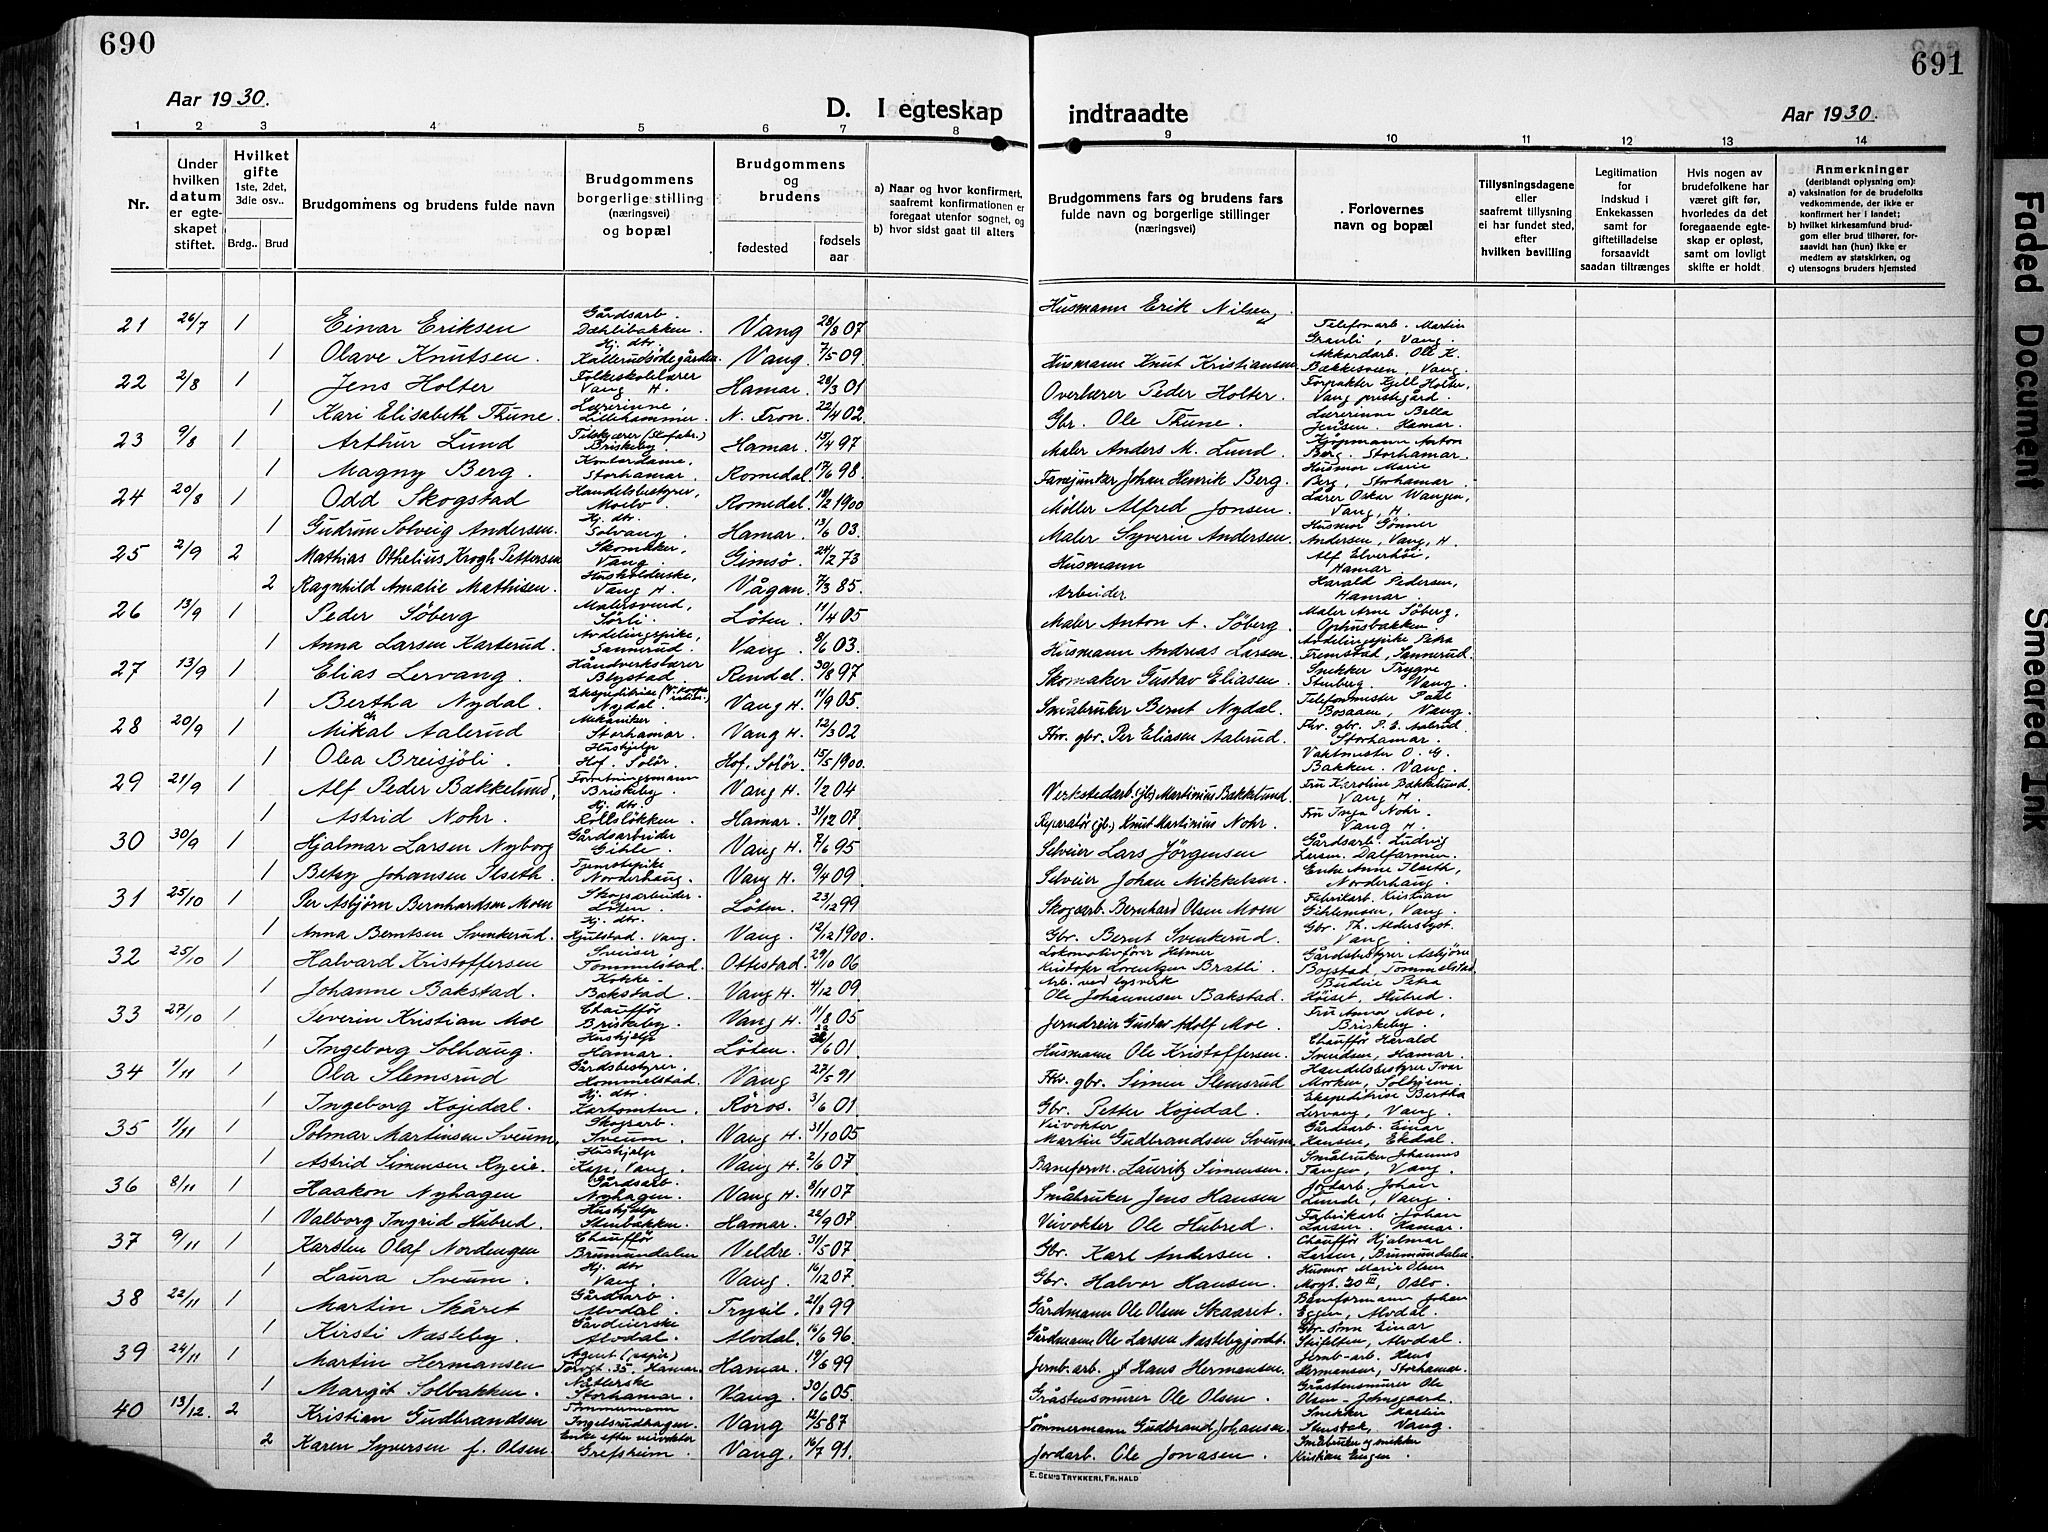 690
691
Aar 1930.
D. I egteskap
indtraadte
Aar 1930.
1 2 3 4 5 6 7 8 9 10 11 12 13 14
Nr.
Under hvilken datum er egteskapet stiftet.
Hvilket gifte 1ste, 2det, 3die osv..
Brdg.. Brud
Brudgommens og brudens fulde navn
Brudgommens borgerlige stilling (næringsvei) og bopæl
Brudgommens og brudens
fødested fødsels aar
a) Naar og hvor konfirmert, saafremt konfirmationen er foregaat utenfor sognet, og
b) hvor sidst gaat til alters
Brudgommens fars og brudens fars fulde navn og borgerlige stillinger (næringsvei)
Forlovernes navn og bopæl
Tillysningsdagene eller saafremt tillysning ei har fundet sted, efter hvilken bevilling
Legitimation for Indskud i Enkekassen samt for giftetilladelse forsaavidt saadan tiltrænges
Hvis nogen av brudefolkene har været gift før, hvorledes da det foregaaende egteskap er opløst, samt om lovligt skifte er holdt
Anmerkninger (deriblandt oplysning om):
a) vaksination for de brudefolks vedkommende, der ikke er konfirmert her i landet;
b) hvilket kirkesamfund brudgom eller brud tilhører, forsaavidt han (hun) ikke er medlem av statskirken, og
c) utensogns bruders hjemsted
21 26/7 1 Einar Eriksen Gårdsarb. Dæhlibakken. Vang 28/8 07 Husmann Erik Nilsen Telefonarb. Martin Granli, Vang.
1 Olave Knutsen. Hj. dtr. Kallerudsødegården Vang. 7/5 09 Husmann Knut Kristiansen Akkordarb. Ole K. Bakkesveen, Vang.
22 2/8 1 Jens Holter Folkeskolelærer Vang H. Hamar. 28/3 01 Overlærer Peder Holter. Forpakter Kjell Holter, Vang prestegård.
1 Kari Elisabeth Thune. Lærerinne, Lillehammer. N. Fron. 22/4 02. Gbr. Ole Thune. Lærerinne Bella Jensen. Hamar.
23 9/8 1 Arthur Lund Tilskjærer (Skofabr.) Briskeby. Hamar. 15/4 97 Maler Anders M. Lund. Kjøpmann Anton Berg. Storhamar.
1 Magny Berg. Kontordame, Storhamar. Romedal. 17/6 98. Fanejunker Johan Henrik Berg. Husmor Marie Berg, Storhamar.
24 20/8 1 Odd Skogstad Handelsbestyrer, Moelv. Romedal. 18/2 1900 Møller Alfred Jonsen. Lærer Oskar Wangen, Vang, H.
1 Gudrun Solveig Andersen. Hj. dtr. Solvang. Hamar. 13/6 03. Maler Syverin Andersen. Husmor Gønner Andersen, Vang, H.
25 2/9 2 Mathias Othelius Krogh Pettersen Skomaker, Vang. Gimsø. 24/2 73 Husmann Alf Elverhöi, Hamar.
2 Ragnhild Amalie Mathisen. Husholderske, Vang H. Vågan. 7/3 85. Arbeider Harald Pedersen, Hamar.
26 13/9 1 Peder Söberg Malersvend, Sörli. Löten. 11/4 05 Maler Anton A. Söberg. Maler Arne Söberg, Ophusbakken.
1 Anna Larsen Karterud. Avdelingspike, Sannerud. Vang. 8/6 03. Husmann Andreas Larsen Avdelingspike Petra Fremstad, Sannerud.
27 13/9 1 Elias Lervang. Håndverkslærer Blystad. Rendal. 30/8 97 Skomaker Gustav Eliasen. Snekker Trygve Stenberg. Vang.
1 Bertha Nydal. Ekspeditrise Nydal. Vang H. 11/9 05. Småbruker Bernt Nydal. Telefonmester Paul Bosaaen, Vang.
28 20/9 1 Mikal Aalerud Mekaniker. Storhamar. Vang H. 12/3 02 Fhv. gbr. Per Eliasen Aalerud. Fhv. gbr. P. E. Aalerud Storhamar.
1 Olea Breisjöli. Hushjelp Hof. Solör. Hof. Solör. 15/5 1900. Vaktmester O. G. Bakken. Vang.
29 21/9 1 Alf Peder Bækkelund, Forretningsmann Briskeby. Vang H. 1/2 04 Verkstedarb. Martinius Bakkelund. Fru Karoline Bækkelund. Vang H.
1 Astrid Nohr. Hj. dtr. Rollsløkken. Hamar. 31/12 07. Reparatör Knut Martinius Nohr. Fru Inga Nohr. Vang H.
30 30/9 1 Hjalmar Larsen Nyborg Gårdsarbeider Gihle. Vang H. 7/6 95 Selveier Lars Jörgensen Gårdsarb. Ludvig Larsen. Dalfarmen.
1 Betsy Johansen Ilseth. Tjenestepike Norderhaug. Vang H. 9/4 09. Selveier Johan Mikkelsen. Enke Anne Ilseth, Norderhaug.
31 25/10 1 Per Asbjörn Bernhardsen Moen Skogsarbeider. Löten. Löten. 23/12 99 Skogsarb. Bernhard Olsen Moen Fabrikarb. Kristian Gihlemoen, Vang.
1 Anna Berntsen Svenkerud. Hj. dtr. Hjulstad. Vang. Vang. 12/12 1900. Gbr. Bernt Svenkerud. Gbr. Th. Alderslyst. Vang.
32 25/10 1 Halvard Kristoffersen Sveiser Tommelstad. Ottestad. 29/10 06 Lokomotivfører Helmer Kristofer Lorentzen Bratli. Gårdsbestyrer Asbjörn Bogstad, Tommelstad.
1 Johanne Bakstad. Kokke. Bakstad. Vang H. 4/12 09. Arb. ved lysverk Ole Johannesen Bakstad. Budeie Petra Höiset, Hubred.
33 27/10 1 Severin Kristian Moe Chauffør Briskeby. Vang H. 11/8 05 Jerndreier Gustav Adolf Moe. Fru Anna Moe, Briskeby.
1 Ingeborg Solhaug. Hushjelp Hamar. Löten. /6 01. Husmann Ole Kristoffersen. Chauffør Harald Svendsen, Hamar.
34 1/11 1 Ola Slemsrud Gårdsbestyrer. Hommelstad. Vang 27/5 91 Fhv. gbr. Simen Slemsrud Handelsbestyrer Ivar Morken, Solhjem.
1 Ingeborg Kojedal. Hj. dtr. Kartomten. Röros. 3/6 01 Gbr. Petter Kojedal. Ekspeditrise Bertha Lervang, Vang.
35 1/11 1 Polmar Martinsen Sveum, Skogsarb. Sveum. Vang H. 31/10 05 Veivokter Martin Gudbrandsen Sveum. Gårdsarb. Einar Hansen, Ekdal.
1 Astrid Simensen Ryeie. Hushjelp Kap, Vang. Vang H. 2/6 07 Baneform. Lauritz Simensen. Småbruker Johannes Tangen, Vang.
36 8/11 1 Haakon Nyhagen Gårdsarb. Nyhagen. Vang H. 8/11 07 Småbruker Jens Hansen Jordarb. Johan Lunde, Vang.
1 Valborg Ingrid Hubred. Hushjelp Stenbakken. Hamar. 22/9 07. Veivokter Ole Hubred. Fabrikarb. Johan Larsen. Hamar.
37 9/11 1 Karsten Olaf Nordengen Chauffør Brumunddalen Veldre. 31/5 07 Gbr. Karl Andersen. Chauffør Hjalmar Larsen, Brumunddalen.
1 Laura Sveum. Hj. dtr Vang. Vang. 16/12 07. Gbr. Halvor Hansen. Husmor Marie Olsen Mogt. 20 III, Oslo.
38 22/11 1 Martin Skåret Gårdsarb. Alvdal. Trysil. 21/8 99 Gårdmann Ole Olsen Skaaret. Baneformann Johan Eggen, Alvdal.
1 Kirsti Næsteby. Gårdeierske Alvdal. Alvdal. 16/6 96. Gårdmann Ole Larsen Næstebyjordt. Gbr-sønn Einar Alvdal.
39 24/11 1 Martin Hermansen Agent (papir) Torvgt. 35, Hamar. Hamar. 19/6 99 Jernb.arb. Hans Hermansen. Jernb-arb. Hans Hermansen, Storhamar.
1 Margit Solbakken. Nåtlerske Storhamar. Vang. 30/6 05. Gråstensmurer Ole Olsen. Gråstensmurer Ole Olsen
40 13/12. 2 Kristian Gudbrandsen Tömmermann Ingelsrudhagen. Vang 12/5 87 Tömmermann Gudbrand Johansen. Snekker Martin Stenstok, Vang.
2 Karen Syversen f. Olsen. Enke efter veivokter Grefsheim. Vang. 16/7 91. Jordarb. Ole Jonasen. Småbruker og snekker Kristian Engen.
E. SEM'S TRYKKERI, FR.HALD
Faded Document
Smeared Ink